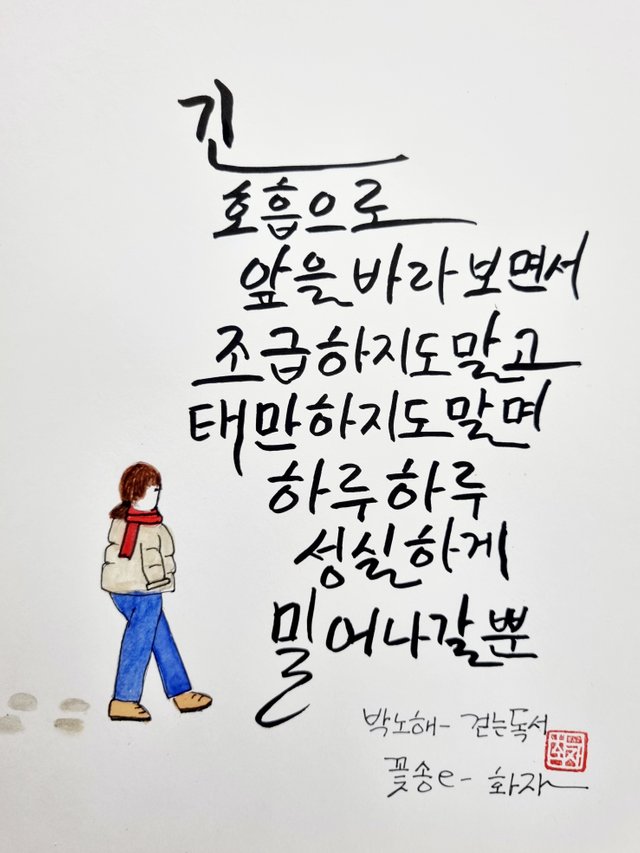 긴
호흡으로
앞을 바라보면서
조급하지도 말고
태만하지도 말며
하루하루
성실하게
밀어나갈 뿐
박노해- 걷는독서
꽃송e- 화자